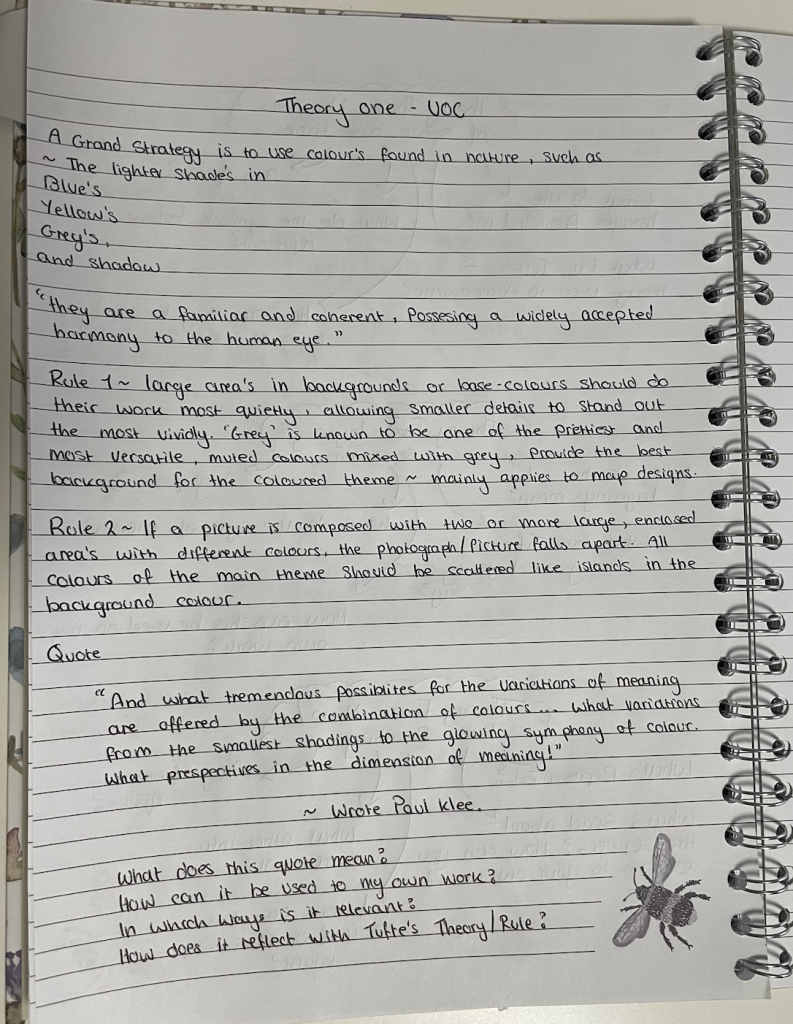 Theory one - UOC
A Grand Strategy is to use colour's found in nature, such as
~ The lighter shade's in
Blue's
Yellow's
Grey's,
and shadow
"they are a familiar and coherent, Possesing a widely accepted
harmony to the human eye."
Rule 1 ~ large area's in backgrounds or base-colours should do
their work most quietly, allowing smaller details to stand out
the most vividly. 'Grey' is known to be one of the prettiest and
most versatile, muted colours mixed with grey, provide the best
background for the coloured theme ~ mainly applies to map designs.
Rule 2 ~ If a picture is composed with two or more large, enclosed
area's with different colours, the photograph/Picture falls apart. All
colours of the main theme should be scattered like islands in the
background colour.
Quote
"And what tremendous possiblites for the variations of meaning
are offered by the combination of colours... what variations
from the smallest shadings to the glowing symphony of colour.
What prespectives in the dimension of meaning!"
~ Wrote Paul Klee.
What does this quote mean?
How can it be used to my own work?
In which ways is it relevant?
How does it reflect with Tufte's Theory/Rule?